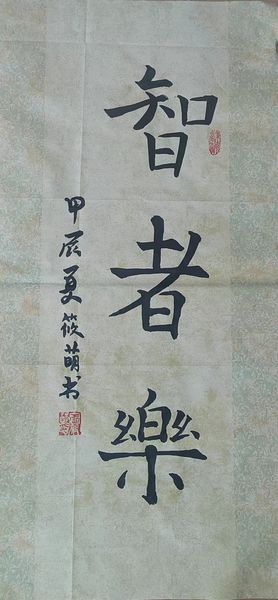 智者樂
甲辰夏筱萌书